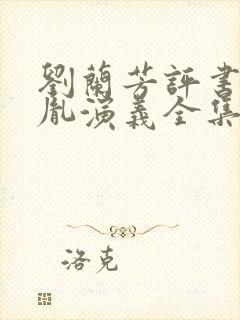 劉蘭芳評書
胤演義全集
洛克